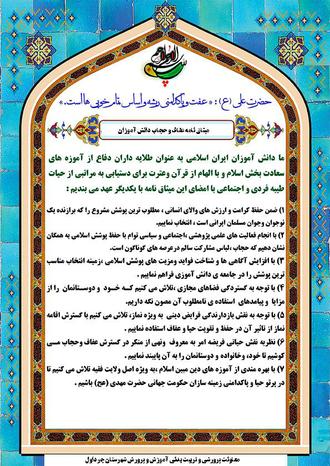 حضرت علی (ع) : « عفت و پاکدامنی ریشه و اساس تمام خوبی هاست. »
میثاق نامه عفاف و حجاب دانش آموزان
ما دانش آموزان ایران اسلامی به عنوان طلایه داران دفاع از آموزه های
سعادت بخش اسلام و با الهام از قرآن وعترت برای دستیابی به مراتبی از حیات
طیبه فردی و اجتماعی با امضای این میثاق نامه با یکدیگر عهد می بندیم :
۱) ضمن حفظ کرامت و ارزش های والای انسانی ، مطلوب ترین پوشش مشروع را که برازنده یک
نوجوان وجوان مسلمان ایرانی است ، انتخاب نماییم.
۲) با انجام فعالیت های علمی پژوهشی ،اجتماعی و سیاسی توام با حفظ پوشش اسلامی به همگان
نشان دهیم که حجاب، لباس مشارکت سالم درعرصه های گوناگون است.
۳) با افزایش آگاهی ها و شناخت فواید ومزیت های پوشش اسلامی ،زمینه انتخاب مناسب
ترین پوشش را در جامعه ی دانش آموزی فراهم نماییم .
۴) با توجه به گستردگی فضاهای مجازی ،تلاش می کنیم که خود و دوستانمان را از
مزایا و پیامدهای استفاده ی نامطلوب آن مصون نگه داریم.
۵) با توجه به نقش بازدارندگی فرایض دینی به ویژه نماز، تلاش می کنیم با گسترش اقامه
نماز از تاثیر آن در حفظ و تقویت حیا و عفاف استفاده نماییم.
۶) نظربه نقش حیاتی فریضه امر به معروف ونهی از منکر در گسترش عفاف وحجاب می
کوشیم تا خود، وخانواده و دوستانمان را به آن پایبند نماییم.
۷) با بهره مندی از آموزه های دین مبین اسلام ،به ویژه اصل ولایت فقیه تلاش می کنیم تا
در پرتو حیا و پاکدامنی زمینه سازان حکومت جهانی حضرت مهدی (عج) باشیم .
معاونت پرورشی و تربیت بدنی آموزش و پرورش شهرستان چرداول